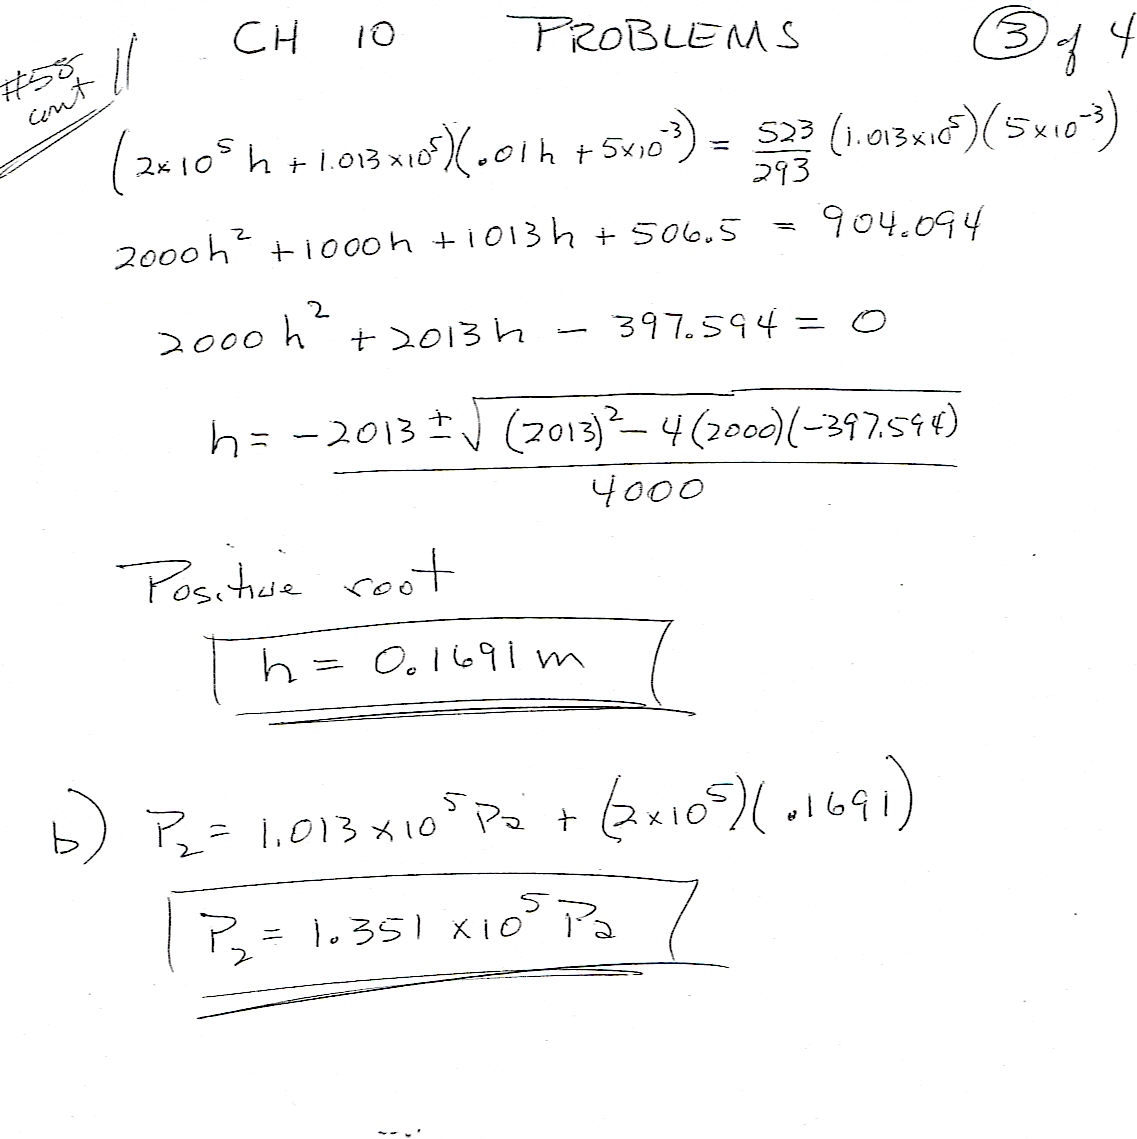 CH 10 PROBLEMS 3 of 4
#58 cont
(2x10⁵ h + 1.013x10⁵)(.01h + 5x10⁻³) = 523/293 (1.013x10⁵)(5x10⁻³)
2000h² + 1000h + 1013h + 506.5 = 904.094
2000h² + 2013h - 397.594 = 0
h = -2013 ± √((2013)² - 4(2000)(-397.594))
4000
Positive root
h = 0.1691 m
b) P₂ = 1.013x10⁵ Pa + (2x10⁵)(.1691)
P₂ = 1.351 x10⁵ Pa